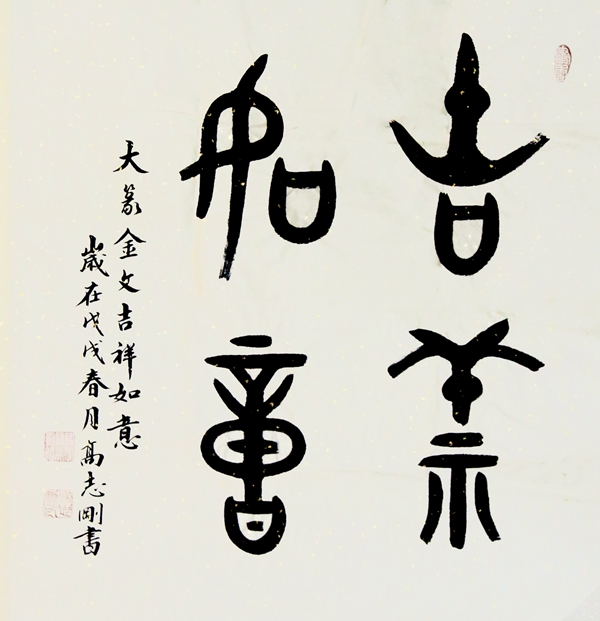 吉祥
如意
大篆金文吉祥如意
歲在戊戌春月高志剛書